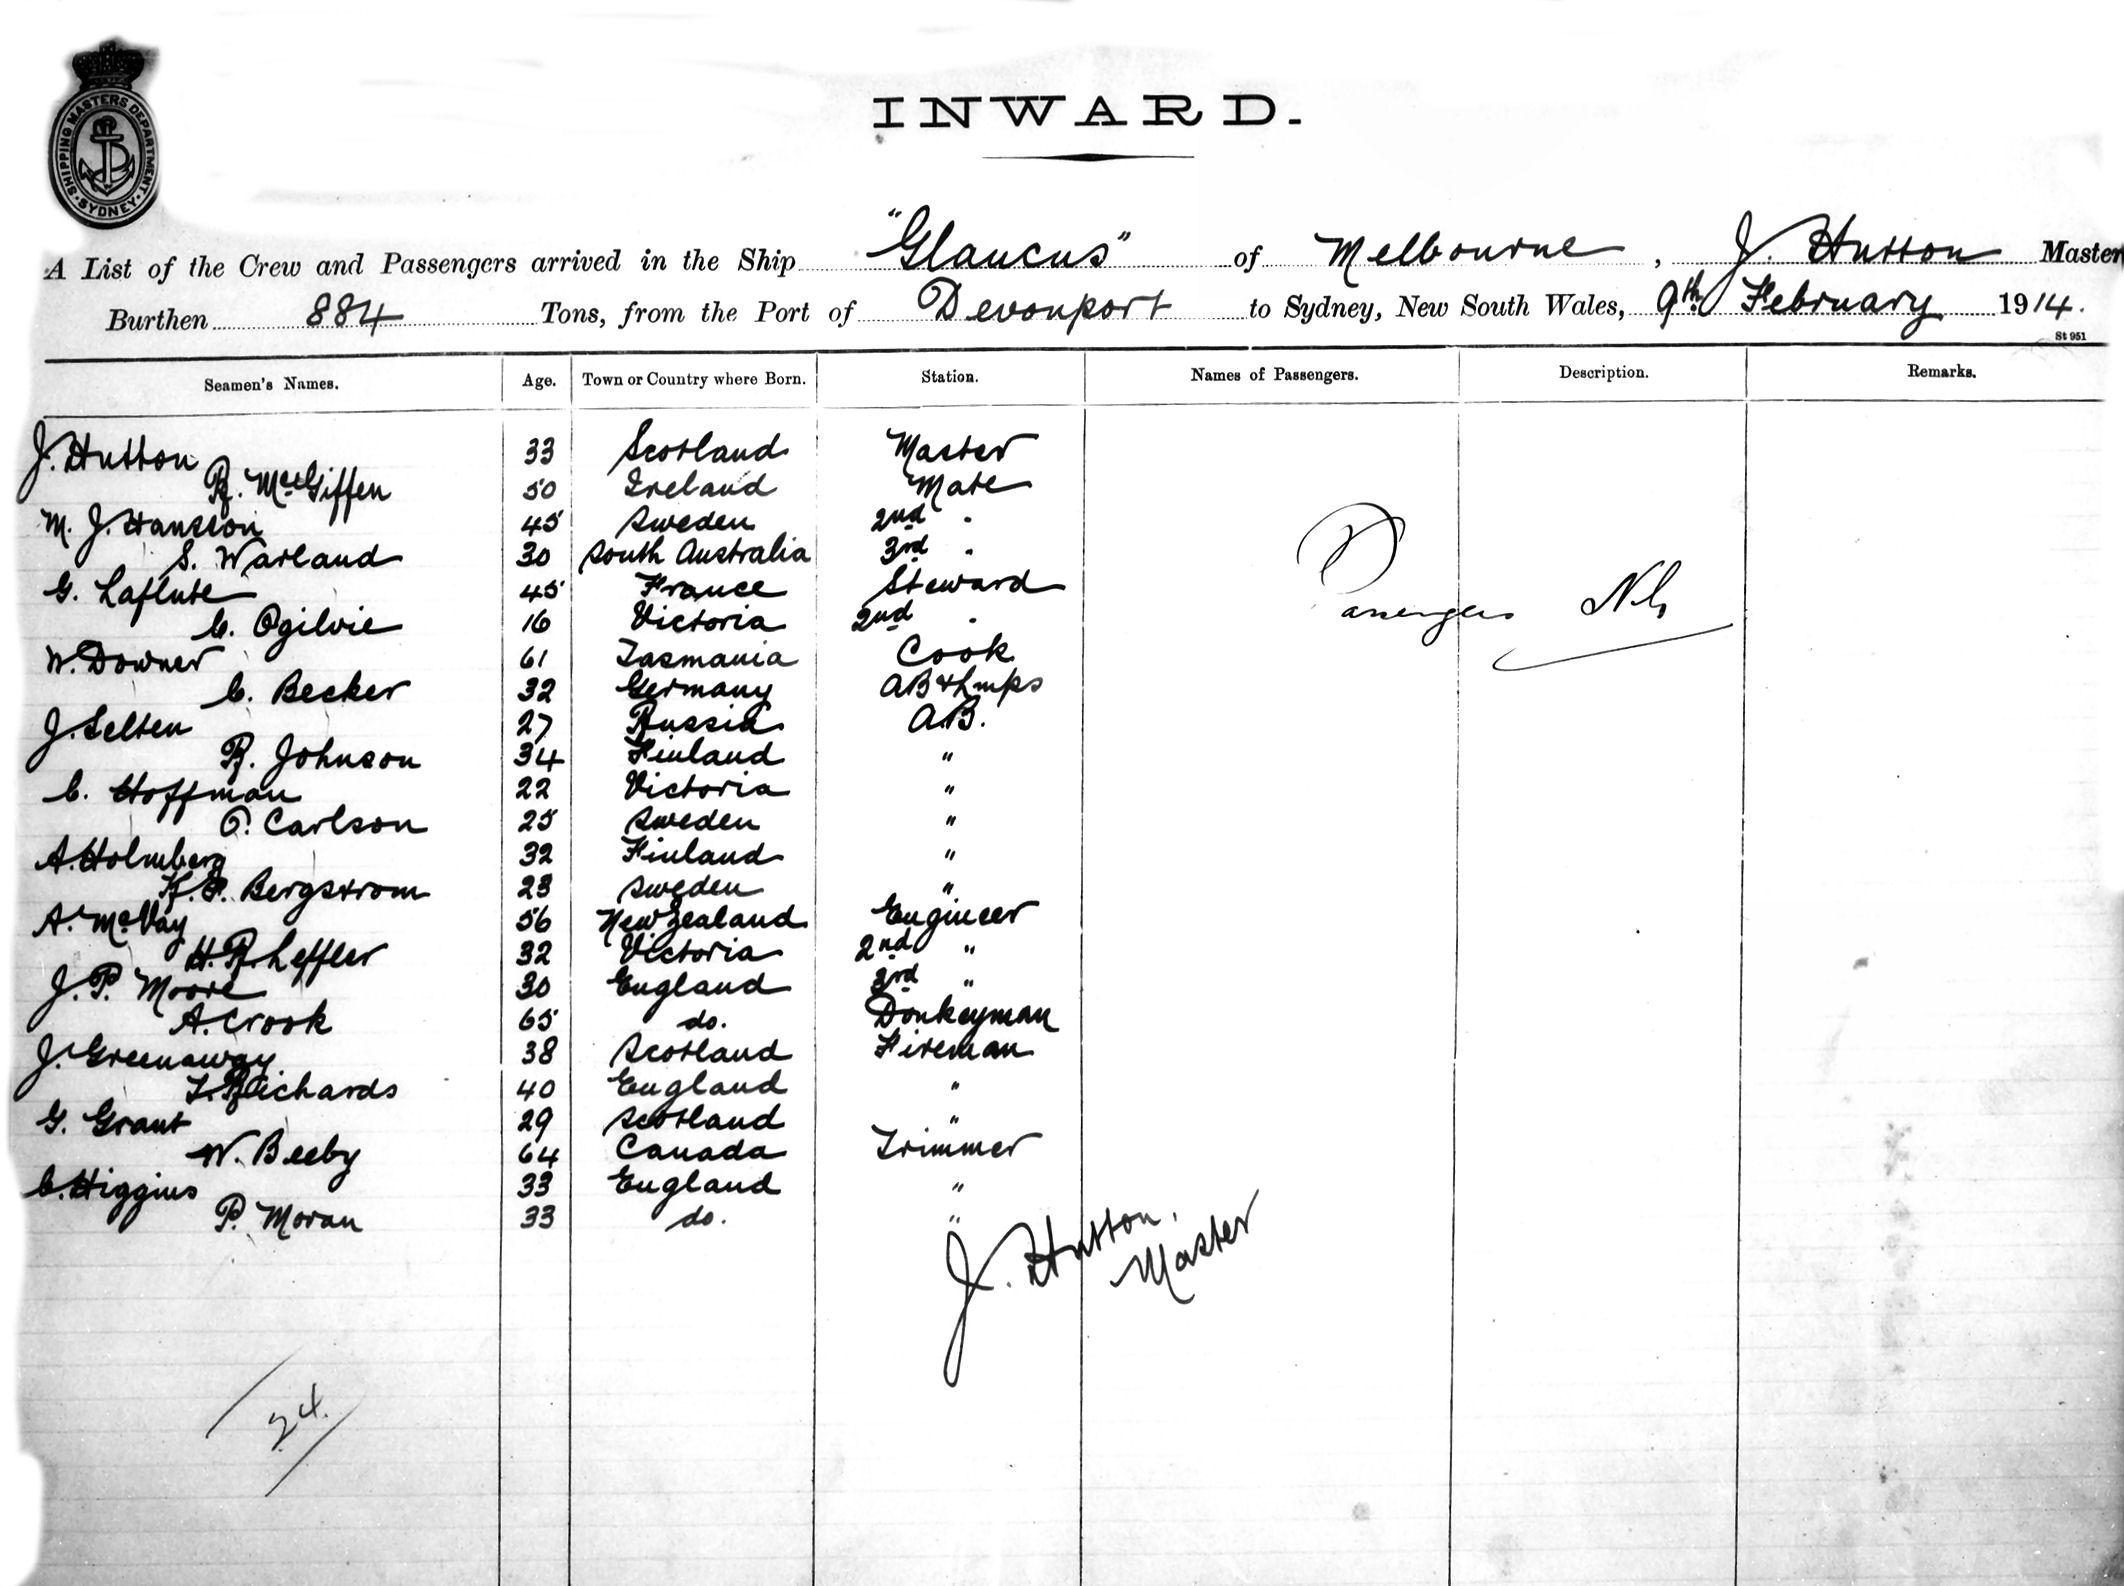 SHIPPING MASTERS DEPARTMENT
SYDNEY
INWARD.
A List of the Crew and Passengers arrived in the Ship "Glaucus" of Melbourne, J. Hutton Master
Burthen 884 Tons, from the Port of Devonport to Sydney, New South Wales, 9th February 1914.
St 951
Seamen's Names. Age. Town or Country where Born. Station. Names of Passengers. Description. Remarks.
J. Hutton 33 Scotland Master
R. McGiffen 50 Ireland Mate
M. J. Hansson 45 Sweden 2nd "
S. Warland 30 South Australia 3rd "
G. Laflute 45 France Steward
C. Ogilvie 16 Victoria 2nd "
Passengers Nil
W. Downer 61 Tasmania Cook
C. Becker 32 Germany AB & Lmps
J. Selten 27 Russia A.B.
R. Johnson 34 Finland "
C. Hoffman 22 Victoria "
O. Carlson 25 Sweden "
A. Holmberg 32 Finland "
K. F. Bergstrom 23 Sweden "
A. McVay 56 New Zealand Engineer
H. R. Leffler 32 Victoria 2nd "
J. P. Moore 30 England 3rd "
A. Crook 65 do. Donkeyman
J. Greenaway 38 Scotland Fireman
T. Richards 40 England "
G. Grant 29 Scotland "
W. Beeby 64 Canada Trimmer
C. Higgins 33 England "
P. Moran 33 do. "
J. Hutton,
Master
24